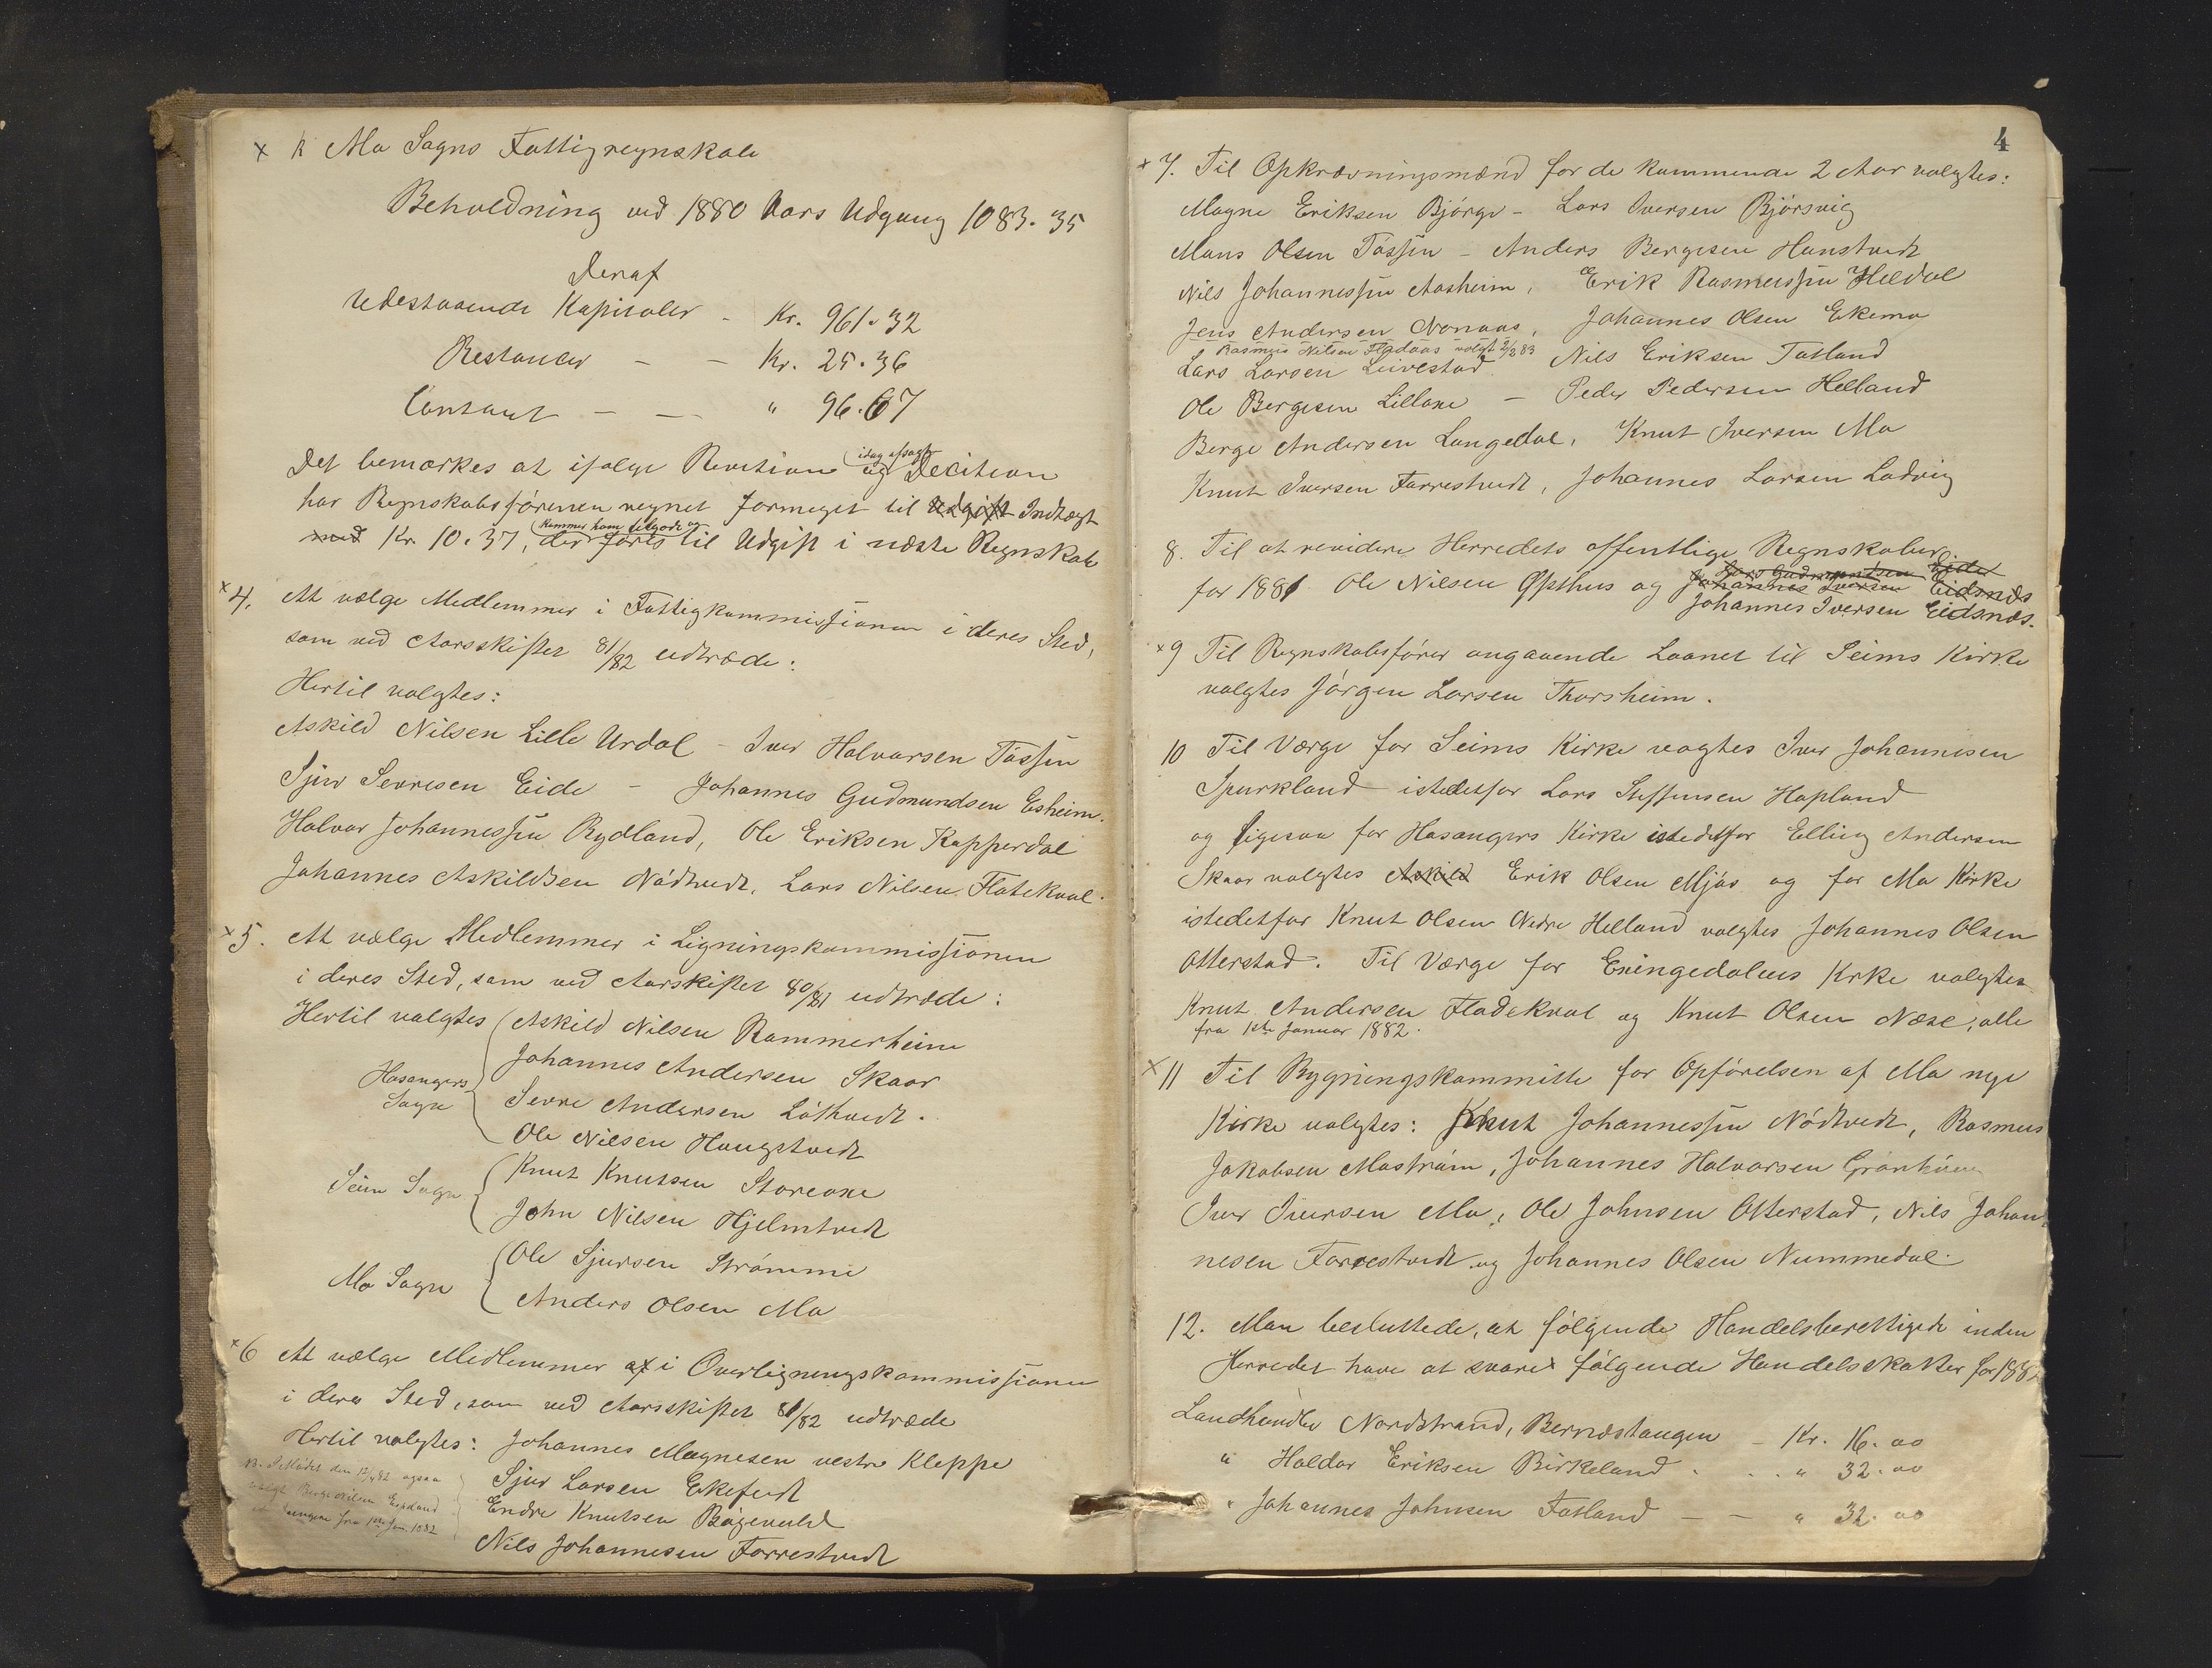 x k Mo Sogns Fattigregnskab
Beholdning ved 1880 Aars Udgang 1083.35
Deraf
Udestaaende Kapitaler - Kr. 961.32
Restancer - - Kr. 25.36
Contant - - " 96.67
Det bemærkes at ifølge Revisions og (idag afsagt) Decision
har Regnskabsføreren regnet formeget til Udgift Indtægt
med Kr. 10.37, (kommer ham tilgode og) der føres til Udgift i næste Regnskab
x 4. At vælge Medlemmer i Fattigkommissionen i deres Sted,
som ved Aarsskiftet 81/82 udtræde:
Hertil valgtes:
Askild Nilsen Lille Urdal - Iver Halvorsen Tossen
Sjur Sevresen Eide - Johannes Gudmundsen Esheim.
Halvor Johannessen Rydland, Ole Eriksen Kupperdal
Johannes Askildsen Nødtvedt, Lars Nilsen Flatekval.
x 5. At vælge Medlemmer i Ligningskommissionen
i deres Sted, som ved Aarskiftet 80/81 udtræde:
Hertil valgtes (Askild Nilsen Rammerheim
Johannes Andersen Skaar
Hosangers Sogn
Sevre Andersen Løthvedt.
Ole Nilsen Hougstvedt
Seim Sogn
Knut Knutsen Storeaxe
John Nilsen Hjelmtvedt
Mo Sogn
Ole Sjursen Strømme
Anders Olsen Mo
x 6 At vælge Medlemmer af i Overligningskommissionen
i deres Sted, som ved Aarsskiftet 81/82 udtræde
Hertil valgtes: Johannes Magnesen vestre Kleppe
Sjur Larsen Ekefedt
Endre Knutsen Bøgevold
Nils Johannesen Forrestvedt
I Mødet den 12/4 82 ogsaa
valgt Berge Nilsen
fra 1ste Jan. 1882
4
x 7. Til Opkrævningsmænd for de kommende 2 Aar valgtes:
Magne Eriksen Bjørge - Lars Iversen Bjørsvig
Mons Olsen Tossen - Anders Bergesen Hanstvedt
Nils Johannessen Aasheim, Erik Rasmussen Heldal
Jens Andersen Nonaas, Johannes Olsen Ekemo
Rasmus Nilsen Fladaas valgt 2/3 83
Lars Larsen Leivestad Nils Eriksen Fatland
Ole Bergesen Lilleaxe - Peder Pedersen Helland
Berge Andersen Langedal, Knut Iversen Mo
Knut Iversen Forrestvedt, Johannes Larsen Ladvig
8. Til at revidere Herredets offentlige Regnskaber
for 1881 Ole Nilsen Opsthus og Johannes Iversen Eidsnes
Lars Gudmundsen Eide
Johannes Iversen Eidsnæs.
x 9 Til Regnskabsfører angaaende Laanet til Seims Kirke
valgtes Jørgen Larsen Thorsheim.
10 Til Værge for Seims Kirke vagtes Iver Johannesen
Spurkland istedetfor Lars Steffensen Hopland
og ligesaa for Hosangers Kirke istedetfor Elling Andersen
Skaar valgtes Askild Erik Olsen Mjøs og for Mo Kirke
istedetfor Knut Olsen Nedre Helland valgtes Johannes Olsen
Otterstad. Til Værge for Exingedalens Krke valgtes
Knut Andersen Fladekval og Knut Olsen Nese, alle
fra 1ste Januar 1882.
x 11 Til Bygningskommitte for Opførelsen af Mo nye
Kirke valgtes: Knut Johannessen Nødtvedt, Rasmus
Jakobsen Mostrøm, Johannes Halvorsen Grønhaug
Iver Iversen Mo, Ole Johnsen Otterstad, Nils Johan-
nesen Forrestvedt og Johannes Olsen Nummedal.
12. Man besluttede, at følgende Handelsberettigede inden
Herredet have at svare følgende Handelsskatter for 1882
Landhandler Nordstrand, Bernestangen - Kr. 16.00
" Haldor Eriksen Birkeland . . . " 32.00
" Johannes Johnsen Fatland - - " 32.00